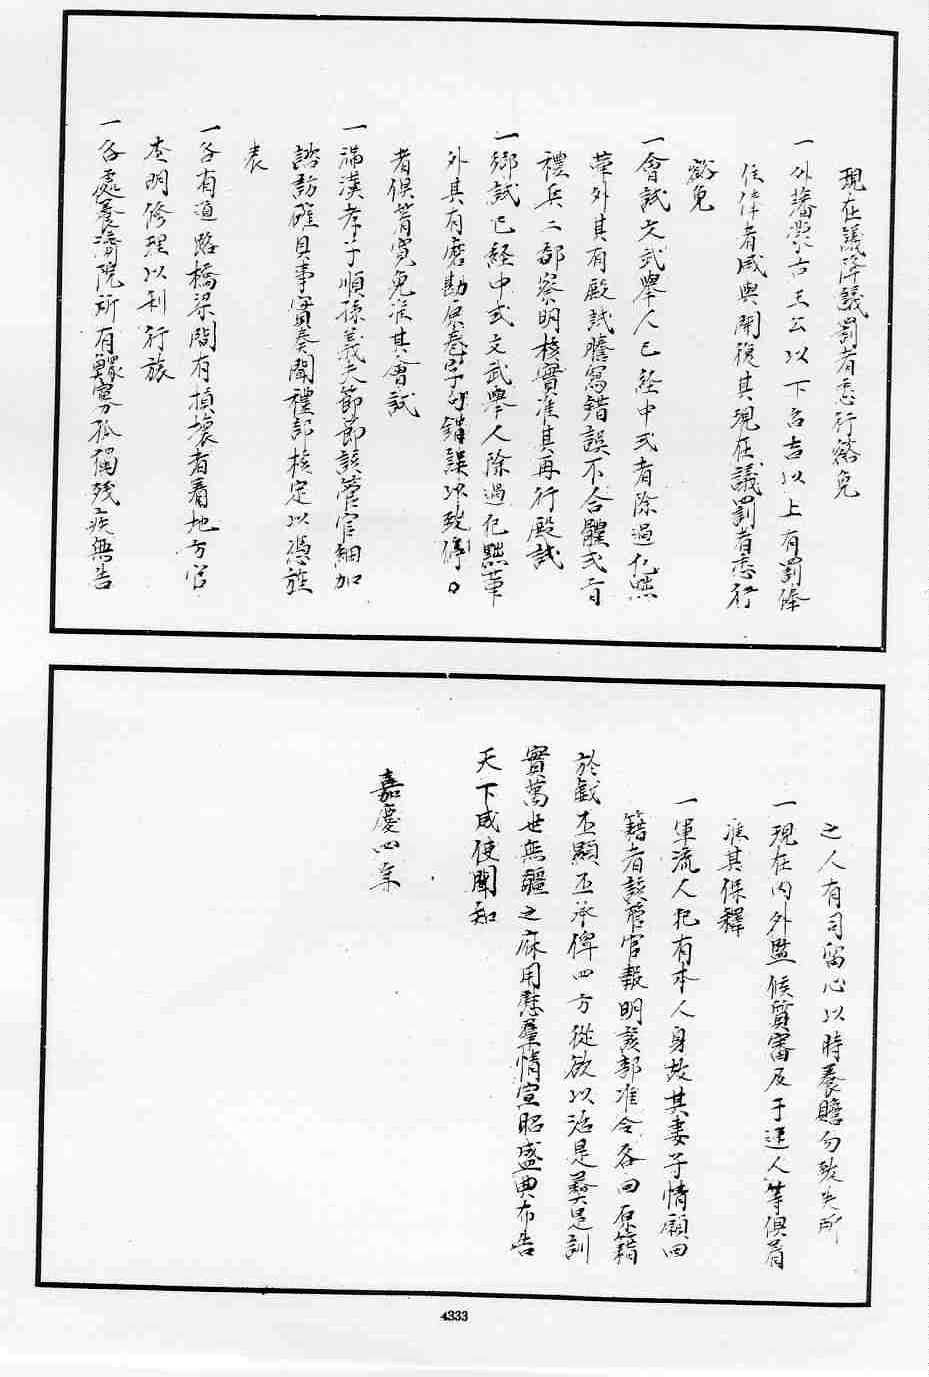 現在議降議罰者悉行豁免
一外藩蒙古王公以下台吉以上有罰俸
住俸者咸與開復其現在議罰者悉行
豁免
一會試文武舉人已經中式者除過犯黜
革外其有殿試謄寫錯誤不合體式者
禮兵二部察明核實准其再行殿試
一鄉試已經中式文武舉人除過犯黜革
外其有磨勘原卷字句錯誤以致停
者俱著寬免准其會試
一滿漢孝子順孫義夫節婦該管官細加
諮訪確具事實奏聞禮部核定以憑旌
表
一各有道路橋梁間有損壞者著地方官
查明修理以利行旅
一各處養濟院所有鰥寡孤獨殘疾無告
之人有司留心以時養贍勿致失所
一現在內外監候質審及干連人等俱著
准其保釋
一軍流人犯有本人身故其妻子情願回
籍者該管官報明該部准令各回原籍
於戲丕顯丕承俾四方從欲以治是彞是訓
實萬世無疆之庥用慰羣情宣昭盛典布告
天下咸使聞知
嘉慶四年
4333